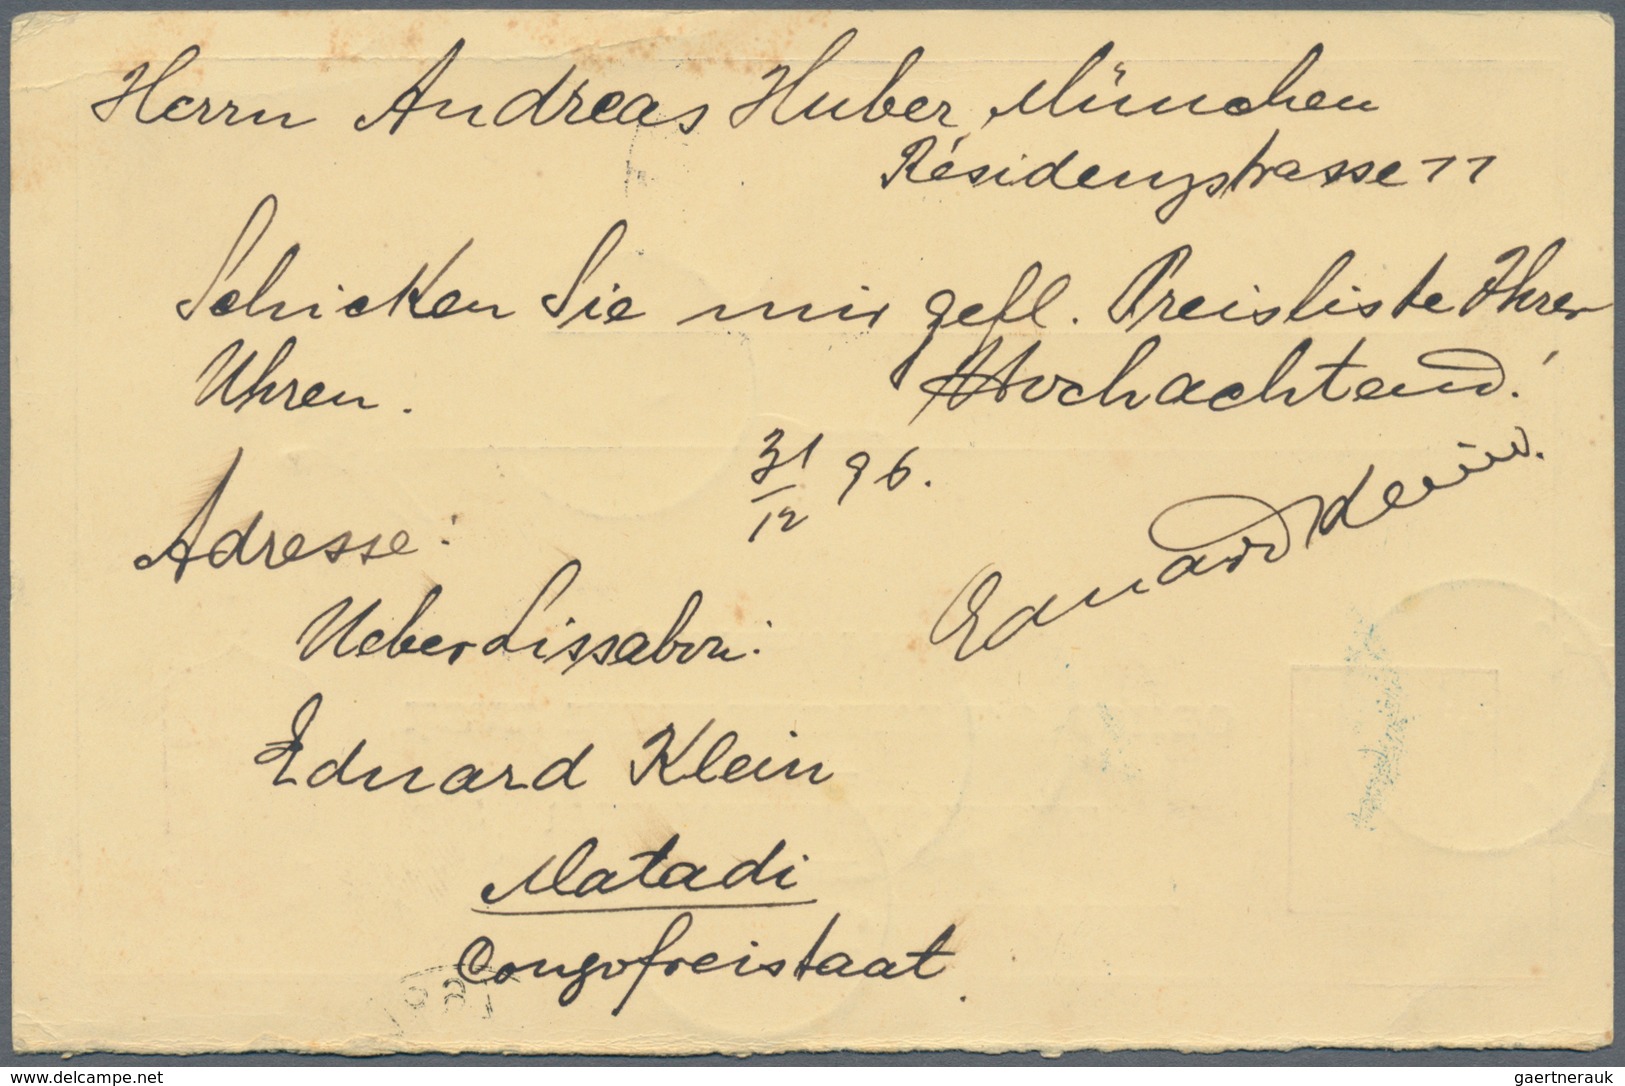 Herrn Andreas Huber, München
Résidenzstrasse 11
Schicken Sie mir gefl. Preisliste Ihrer
Uhren.
Hochachtend!
31/12 96.
Eduard Klein.
Adresse:
Ueber Lissabon:
Eduard Klein
Matadi
Congofreistaat.
www.delcampe.net
gaertnerauk